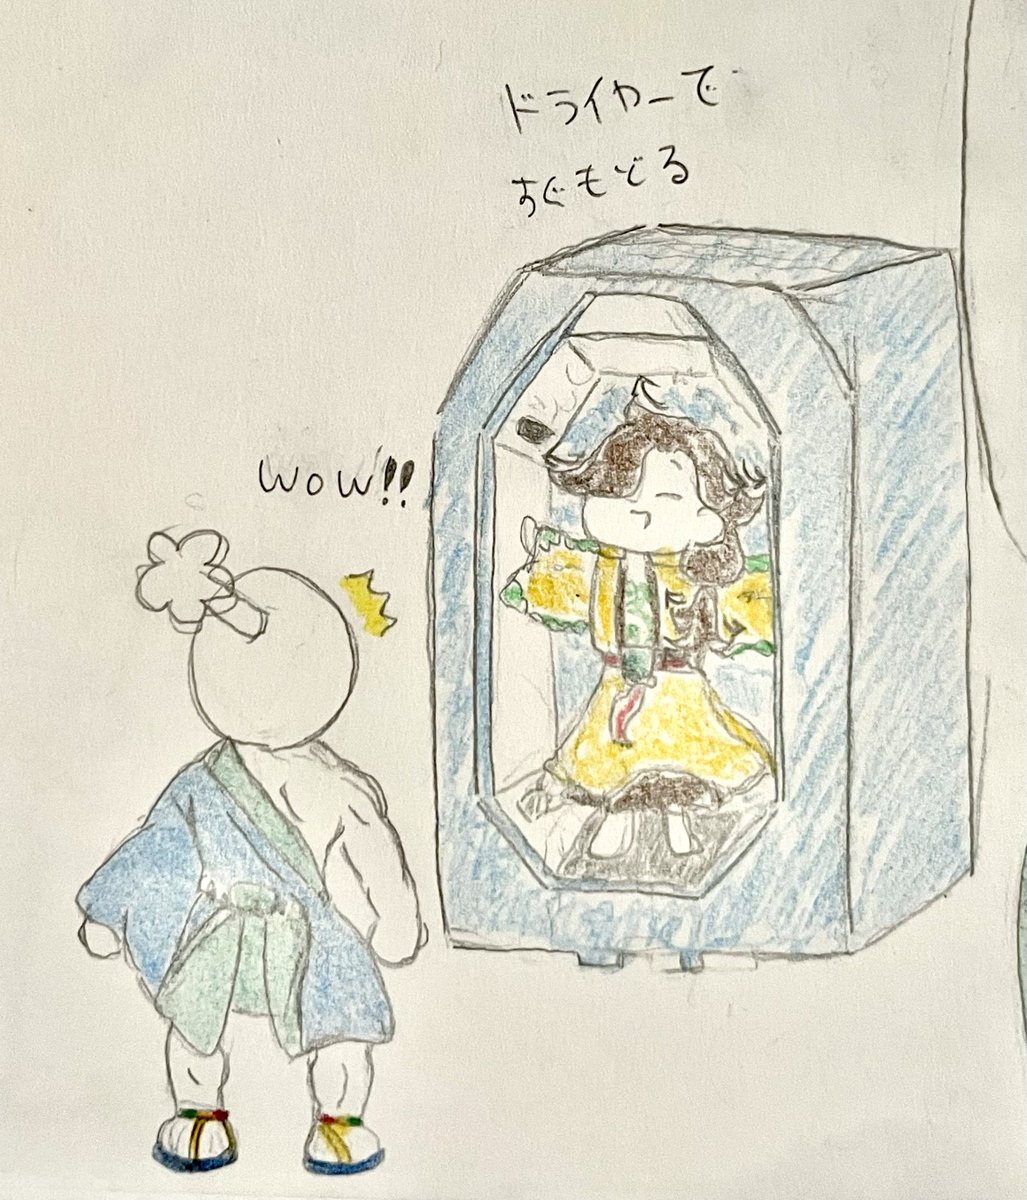 ドライヤーで
すぐもどる
WOW!!